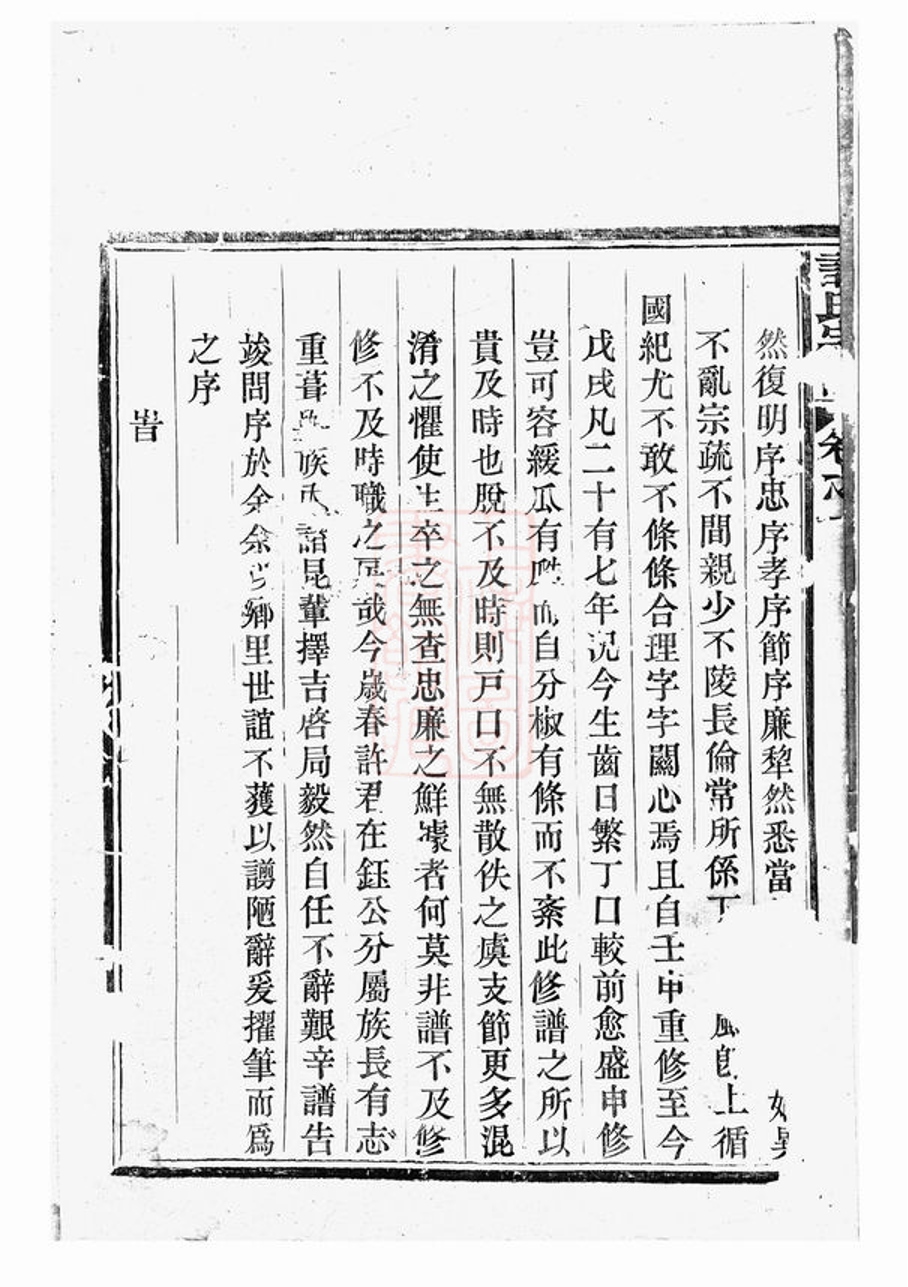 氏宗卷
然復明序忠序孝序節序廉犂然悉當
不亂宗疏不間親少不陵長倫常所係上循
國紀尤不敢不條條合理字字關心焉且自壬申重修至今
戊戌凡二十有七年況今生齒日繁丁口較前愈盛申修
豈可容緩瓜有而自分椒有條而不紊此修譜之所以
貴及時也脫不及時則戸口不無散佚之虞支節更多混
淆之懼使生卒之無查忠廉之鮮㨿者何莫非譜不及修
修不及時職之哉今歲春許君在鈺公分屬族長有志
重葺族諸昆輩擇吉啓局毅然自任不辭艱辛譜告
竣問序於余余鄉里世誼不獲以謭陋辭爰擢筆而爲
之序
旹